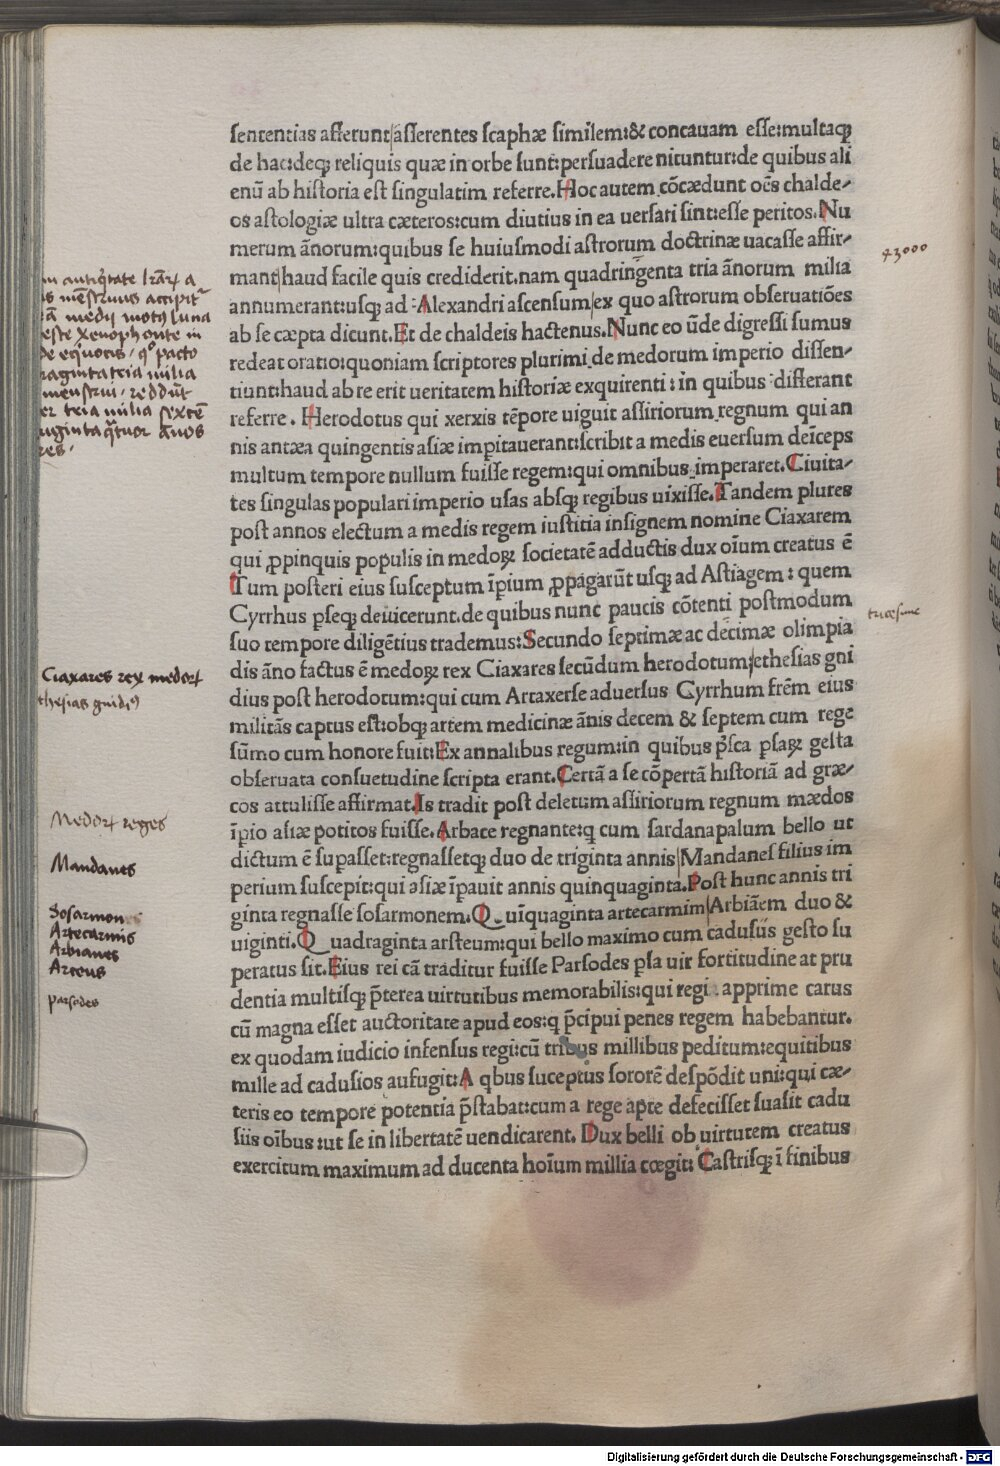 sententias afferunt/asserentes scaphæ similem:& concauam esse:multaqꝫ
de hac:deqꝫ reliquis quæ in orbe sunt:persuadere nituntur:de quibus ali
enū ab historia est singulatim referre.Hoc autem cōcædunt oēs chalde-
os astologiæ ultra cæteros:cum diutius in ea uersati sint:esse peritos.Nu
merum ānorum:quibus se huiusmodi astrorum doctrinæ uacasse affir-
mant/haud facile quis crediderit.nam quadringenta tria ānorum milia
annumerant:usqꝫ ad Alexandri ascensum/ex quo astrorum obseruatiōes
ab se cæpta dicunt.Et de chaldeis hactenus.Nunc eo ūde digressi sumus
redeat oratio:quoniam scriptores plurimi de medorum imperio dissen-
tiunt:haud ab re erit ueritatem historiæ exquirenti:in quibus differant
referre. Herodotus qui xerxis tēpore uiguit assiriorum regnum qui an
nis antæa quingentis asiæ impitauerant:scribit a medis euersum deīceps
multum tempore nullum fuisse regem:qui omnibus imperaret.Ciuita-
tes singulas populari imperio usas absqꝫ regibus uixisse.Tandem plures
post annos electum a medis regem iustitia insignem nomine Ciaxarem
qui ꝓpinquis populis in medoꝝ societatē adductis dux oīum creatus ē
Tum posteri eius susceptum īpium ꝓpagarūt usqꝫ ad Astiagem: quem
Cyrrhus pseqꝫ deuicerunt.de quibus nunc paucis cōtenti postmodum
suo tempore diligētius trademus:Secundo septimæ ac decimæ olimpia
dis āno factus ē medoꝝ rex Ciaxares secūdum herodotum/ethesias gni
dius post herodotum:qui cum Artaxerse aduersus Cyrrhum frēm eius
militās captus est:obqꝫ artem medicinæ ānis decem & septem cum rege
sūmo cum honore fuit:Ex annalibus regum:in quibus p̄sca psaꝝ gesta
obseruata consuetudine scripta erant.Certā a se cōpertā historiā ad græ-
cos attulisse affirmat.Is tradit post deletum assiriorum regnum mædos
īpio asiæ potitos fuisse.Arbace regnante:q cum sardanapalum bello ut
dictum ē supasset:regnassetqꝫ duo de triginta annis/Mandanes filius im
perium suscepit:qui asiæ īpauit annis quinquaginta.Post hunc annis tri
ginta regnasse sosarmonem.Quīquaginta artecarmim/Arbiāem duo &
uiginti.Quadraginta arsteum:qui bello maximo cum cadusiis gesto su
peratus sit.Eius rei cā traditur fuisse Parsodes psa uir fortitudine at pru
dentia multisqꝫ p̄terea uirtutibus memorabilis:qui regi apprime carus
cū magna esset auctoritate apud eos:q p̄cipui penes regem habebantur.
ex quodam iudicio infensus regi:cū tribus millibus peditum:equitibus
mille ad cadusios aufugit:A qbus suceptus sororē despōdit uni:qui cæ-
teris eo tempore potentia p̄stabat:cum a rege apte defecisset suasit cadu
siis oībus:ut se in libertatē uendicarent. Dux belli ob uirtutem creatus
exercitum maximum ad ducenta hoīum millia cœgit: Castrisqꝫ ī finibus
43000
Ciaxares rex medoꝝ
thesias gnidiꝰ
Medoꝝ reges
Mandanes
Sosarmon
Artecarmis
Arbianes
Arteus
parsodes
Digitalisierung gefördert durch die Deutsche Forschungsgemeinschaft - DFG